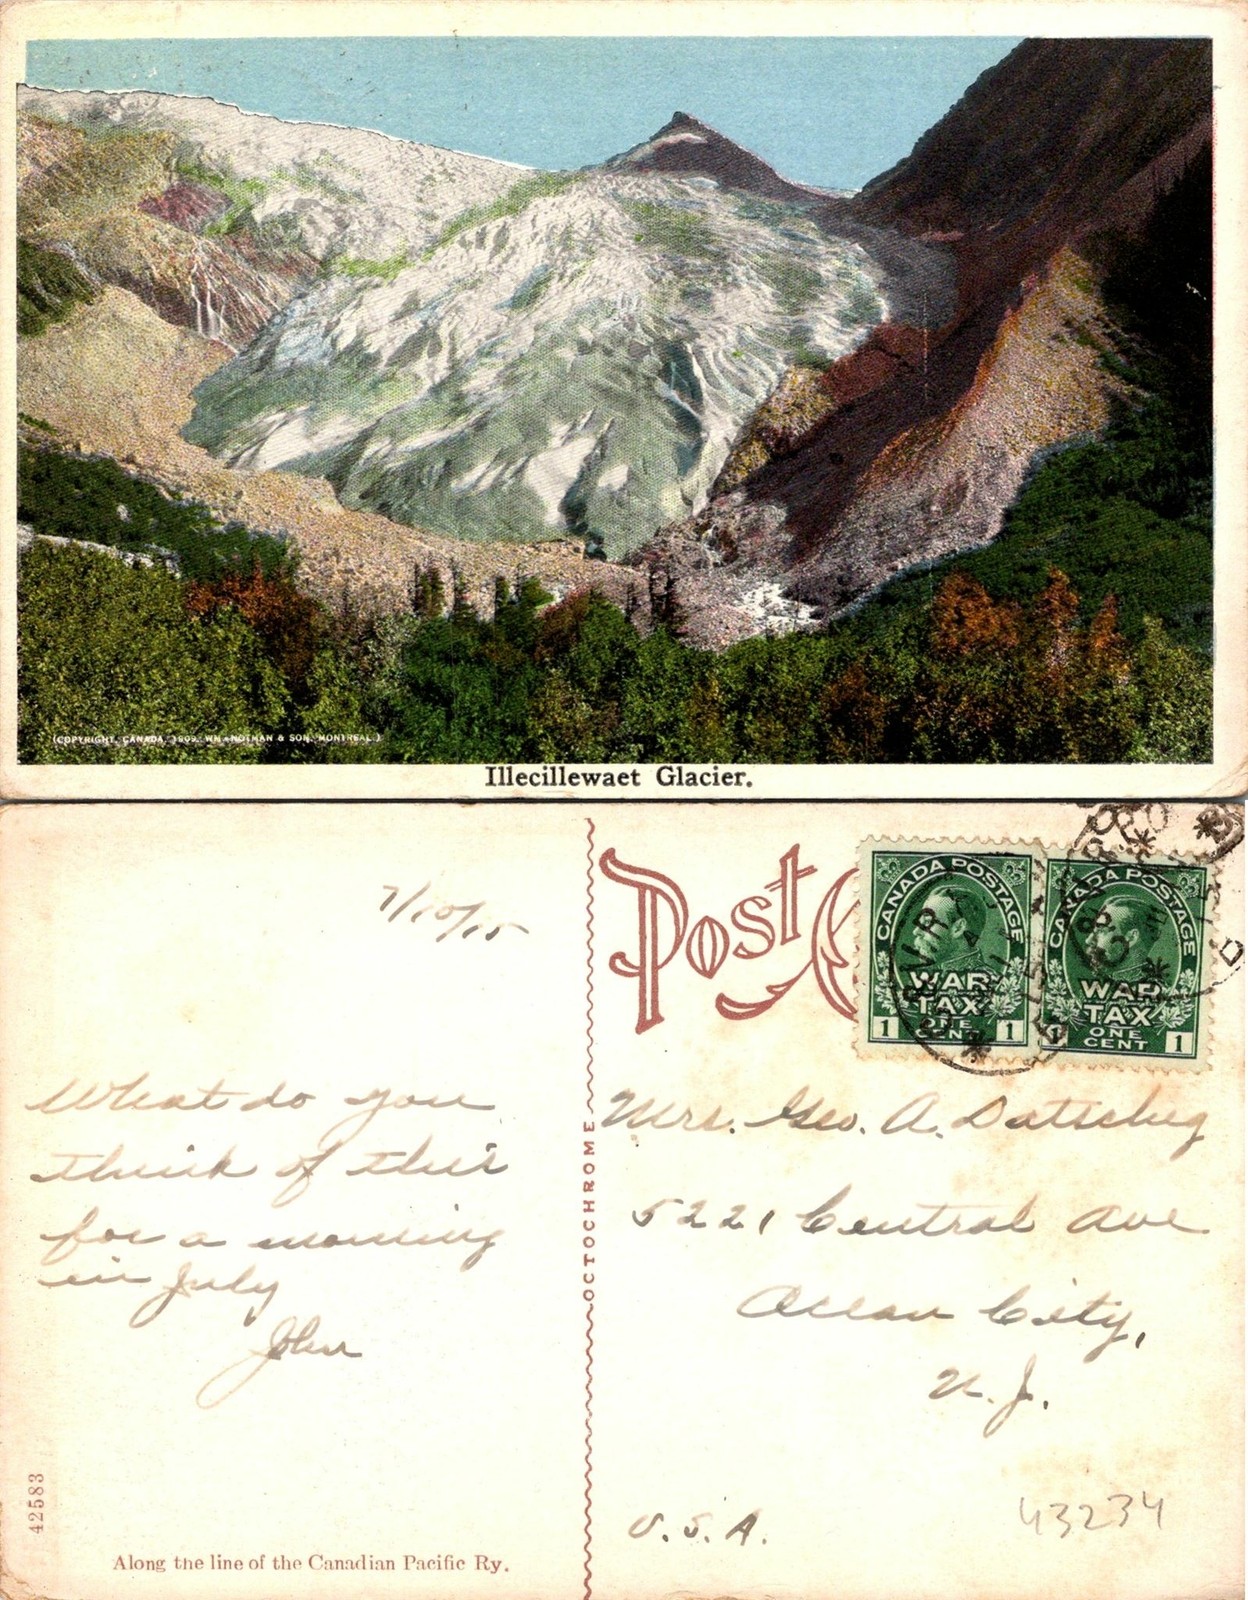 (COPYRIGHT, CANADA, 1909, WM NOTMAN & SON, MONTREAL.)
Illecillewaet Glacier.
7/10/15
What do you
think of this
for a morning
in July
John
42583
Along the line of the Canadian Pacific Ry.
OCTOCHROME
Post
CANADA POSTAGE
WAR
TAX
1 ONE 1
CENT
CANADA POSTAGE
WAR
TAX
ONE
CENT 1
Mrs. Geo. A.
5221 Central Ave
Ocean City,
N. J.
U. S. A.
43234